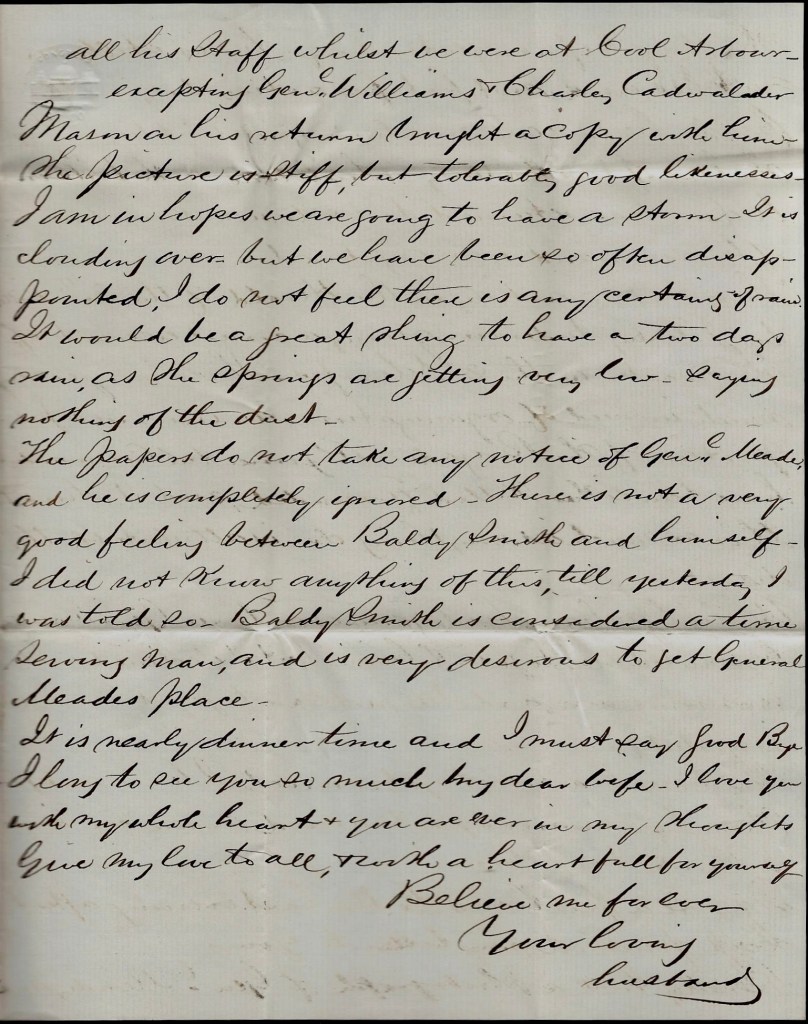 all his Staff whilst we were at Cool Arbour-
excepting Genl. Williams & Charley Cadwalader
Mason on his return brought a copy with him-
the picture is stiff, but tolerably good likenesses-
I am in hopes we are going to have a storm - It is
clouding over - but we have been so often disap-
pointed, I do not feel there is any certainty of rain.
It would be a great thing to have a two days
rain, as the springs are getting very low - saying
nothing of the dust -
The papers do not take any notice of Genl. Meade,
and he is completely ignored - There is not a very
good feeling between Baldy Smith and himself -
I did not know anything of this, till yesterday I
was told so - Baldy Smith is considered a time
serving man, and is very desirous to get General
Meades place -
It is nearly dinner time and I must say good Bye
I long to see you so much my dear wife - I love you
with my whole heart & you are ever in my thoughts
Give my love to all, & with a heart full for yourself
Believe me for ever
Your loving
husband